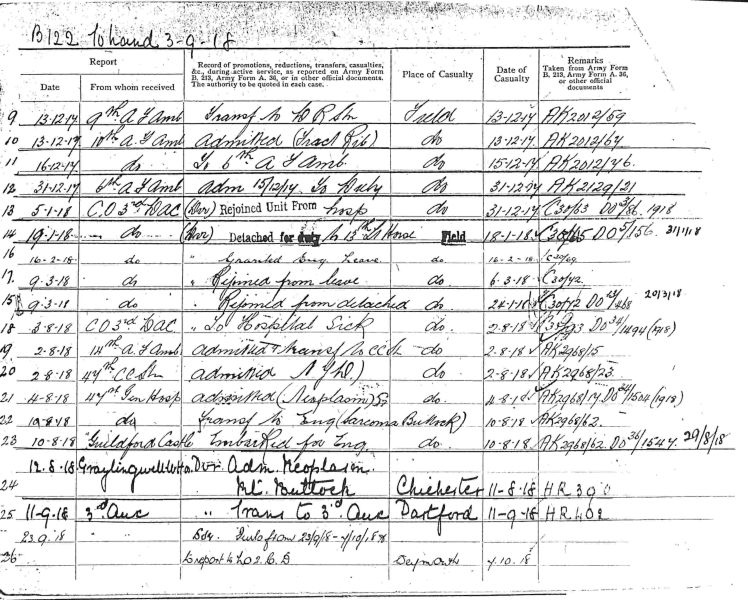 B122 to hand 3-9-18
Report
Record of promotions, reductions, transfers, casualties, &c., during active service, as reported on Army Form B. 213, Army Form A. 36, or in other official documents. The authority to be quoted in each case.
Place of Casualty
Date of Casualty
Remarks
Taken from Army Form B. 213, Army Form A. 36, or other official documents
Date
From whom received
9 13-12-17 9th A F Amb Transf to D R Stn Field 13-12-17 AK2012/59
10 13-12-17 10th A. F Amb admitted (Fract Rib) do 13-12-17 AK2012/67
11 16-12-17 do To 6th A F Amb do 15-12-17 AK2012/76
12 31-12-17 6th A F Amb adm 15/12/17 To Duty do 31-12-17 AK2129/21
13 5-1-18 CO 3rd DAC (Dvr) Rejoined Unit From hosp do 31-12-17 C30/63 DO 1918
14 19-1-18 do (Dvr) Detached for duty to 13th Lt Horse Field 18-1-18 DO5/156 31/1/18
16 16-2-18 do " Granted Eng. Leave do 16-2-18
17. 9-3-18 do " Rejoined from leave do 6-3-18 C30/72
15 9-3-18 do " Rejoined from detached do C30/72 DO 20/3/18
18 3-8-18 CO 3rd DAC " To Hospital Sick do 2-8-18 DO34/1494 (1918)
19. 2-8-18 14th A. F. Amb admitted & transf to CC Stn do 2-8-18 AK2968/15
20 2-8-18 47th CC Stn admitted N Y D) do 2-8-18 AK2968/23
21 4-8-18 47th Gen Hosp admitted (Neoplasm) do 4-8-18 AK2968/17 DO34/1504 (1918)
22 10-8-18 do Transf to Eng (Sarcoma Buttock) do 10-8-18 AK2968/62
23 10-8-18 "Guildford Castle Embarked for Eng. do 10-8-18 AK2968/62 DO36/1547 29/8/18
12.8.18 Graylingwell W. Ho. Dvr. Adm. Neoplasm
24 Rt. Buttock Chichester 11-8-18 HR390
25 11-9-18 3rd Aux " Trans to 3rd Aux Dartford 11-9-18 HR402
23.9.18 Furlo from 23/9/18 - 7/10/18 &
26 to report to No 2 C.D Weymouth 7.10.18